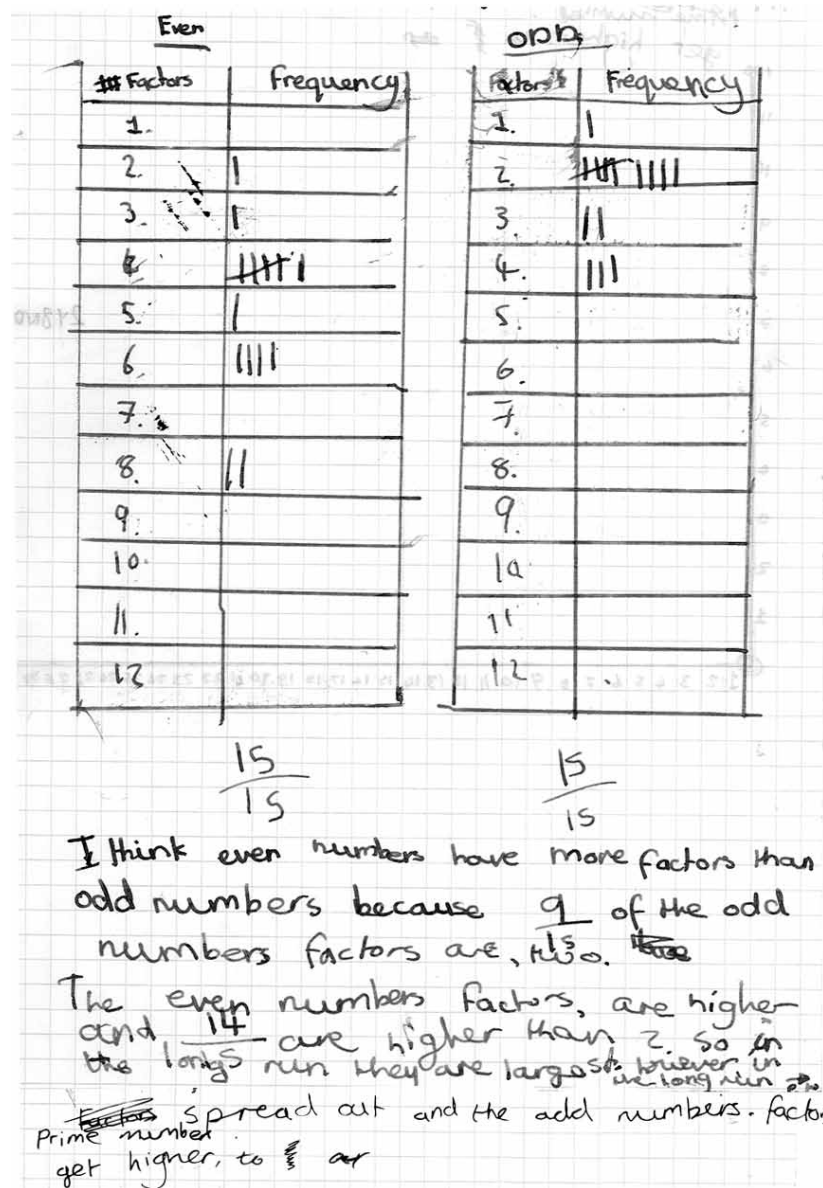 Even
ODD
# Factors Frequency
Factors Frequency
1. 1. |
2. | 2. |||| ||||
3. | 3. ||
4 |||| | 4. |||
5. | 5.
6. |||| 6.
7. 7.
8. || 8.
9. 9.
10. 10
11. 11
12 12
15/15 15/15
I think even numbers have more factors than
odd numbers because 9/15 of the odd
numbers factors are, two.
The even numbers factors, are higher
and 14/15 are higher than 2. so in
the long run they are largest, however in
the long run
spread out and the odd numbers. facto
Prime number
get higher, to